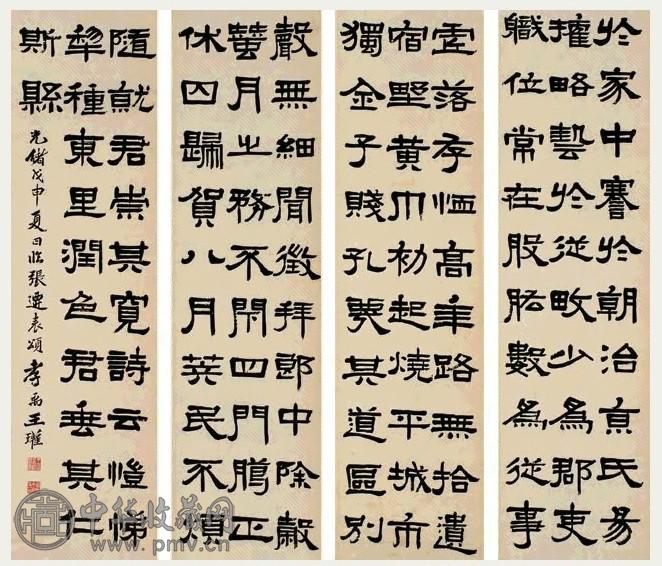 於家中謇於朝治京氏易
權略藝於從畋少為郡吏
職位常在股肱數為從事
虛落存恤高年路無拾遺
宿野黃巾初起燒平城市
獨全子賤孔蔑其道區別
聲無細聞徵拜郎中除穀
蠶月之務不閉四門臘正
休囚歸賀八月筭民不煩
隨就君崇其寬詩云愷悌
犂種東里潤色君垂其仁
斯縣
光緒戊申夏日臨張遷表頌孝禹王瓘
中华收藏网
www.pmv.cn